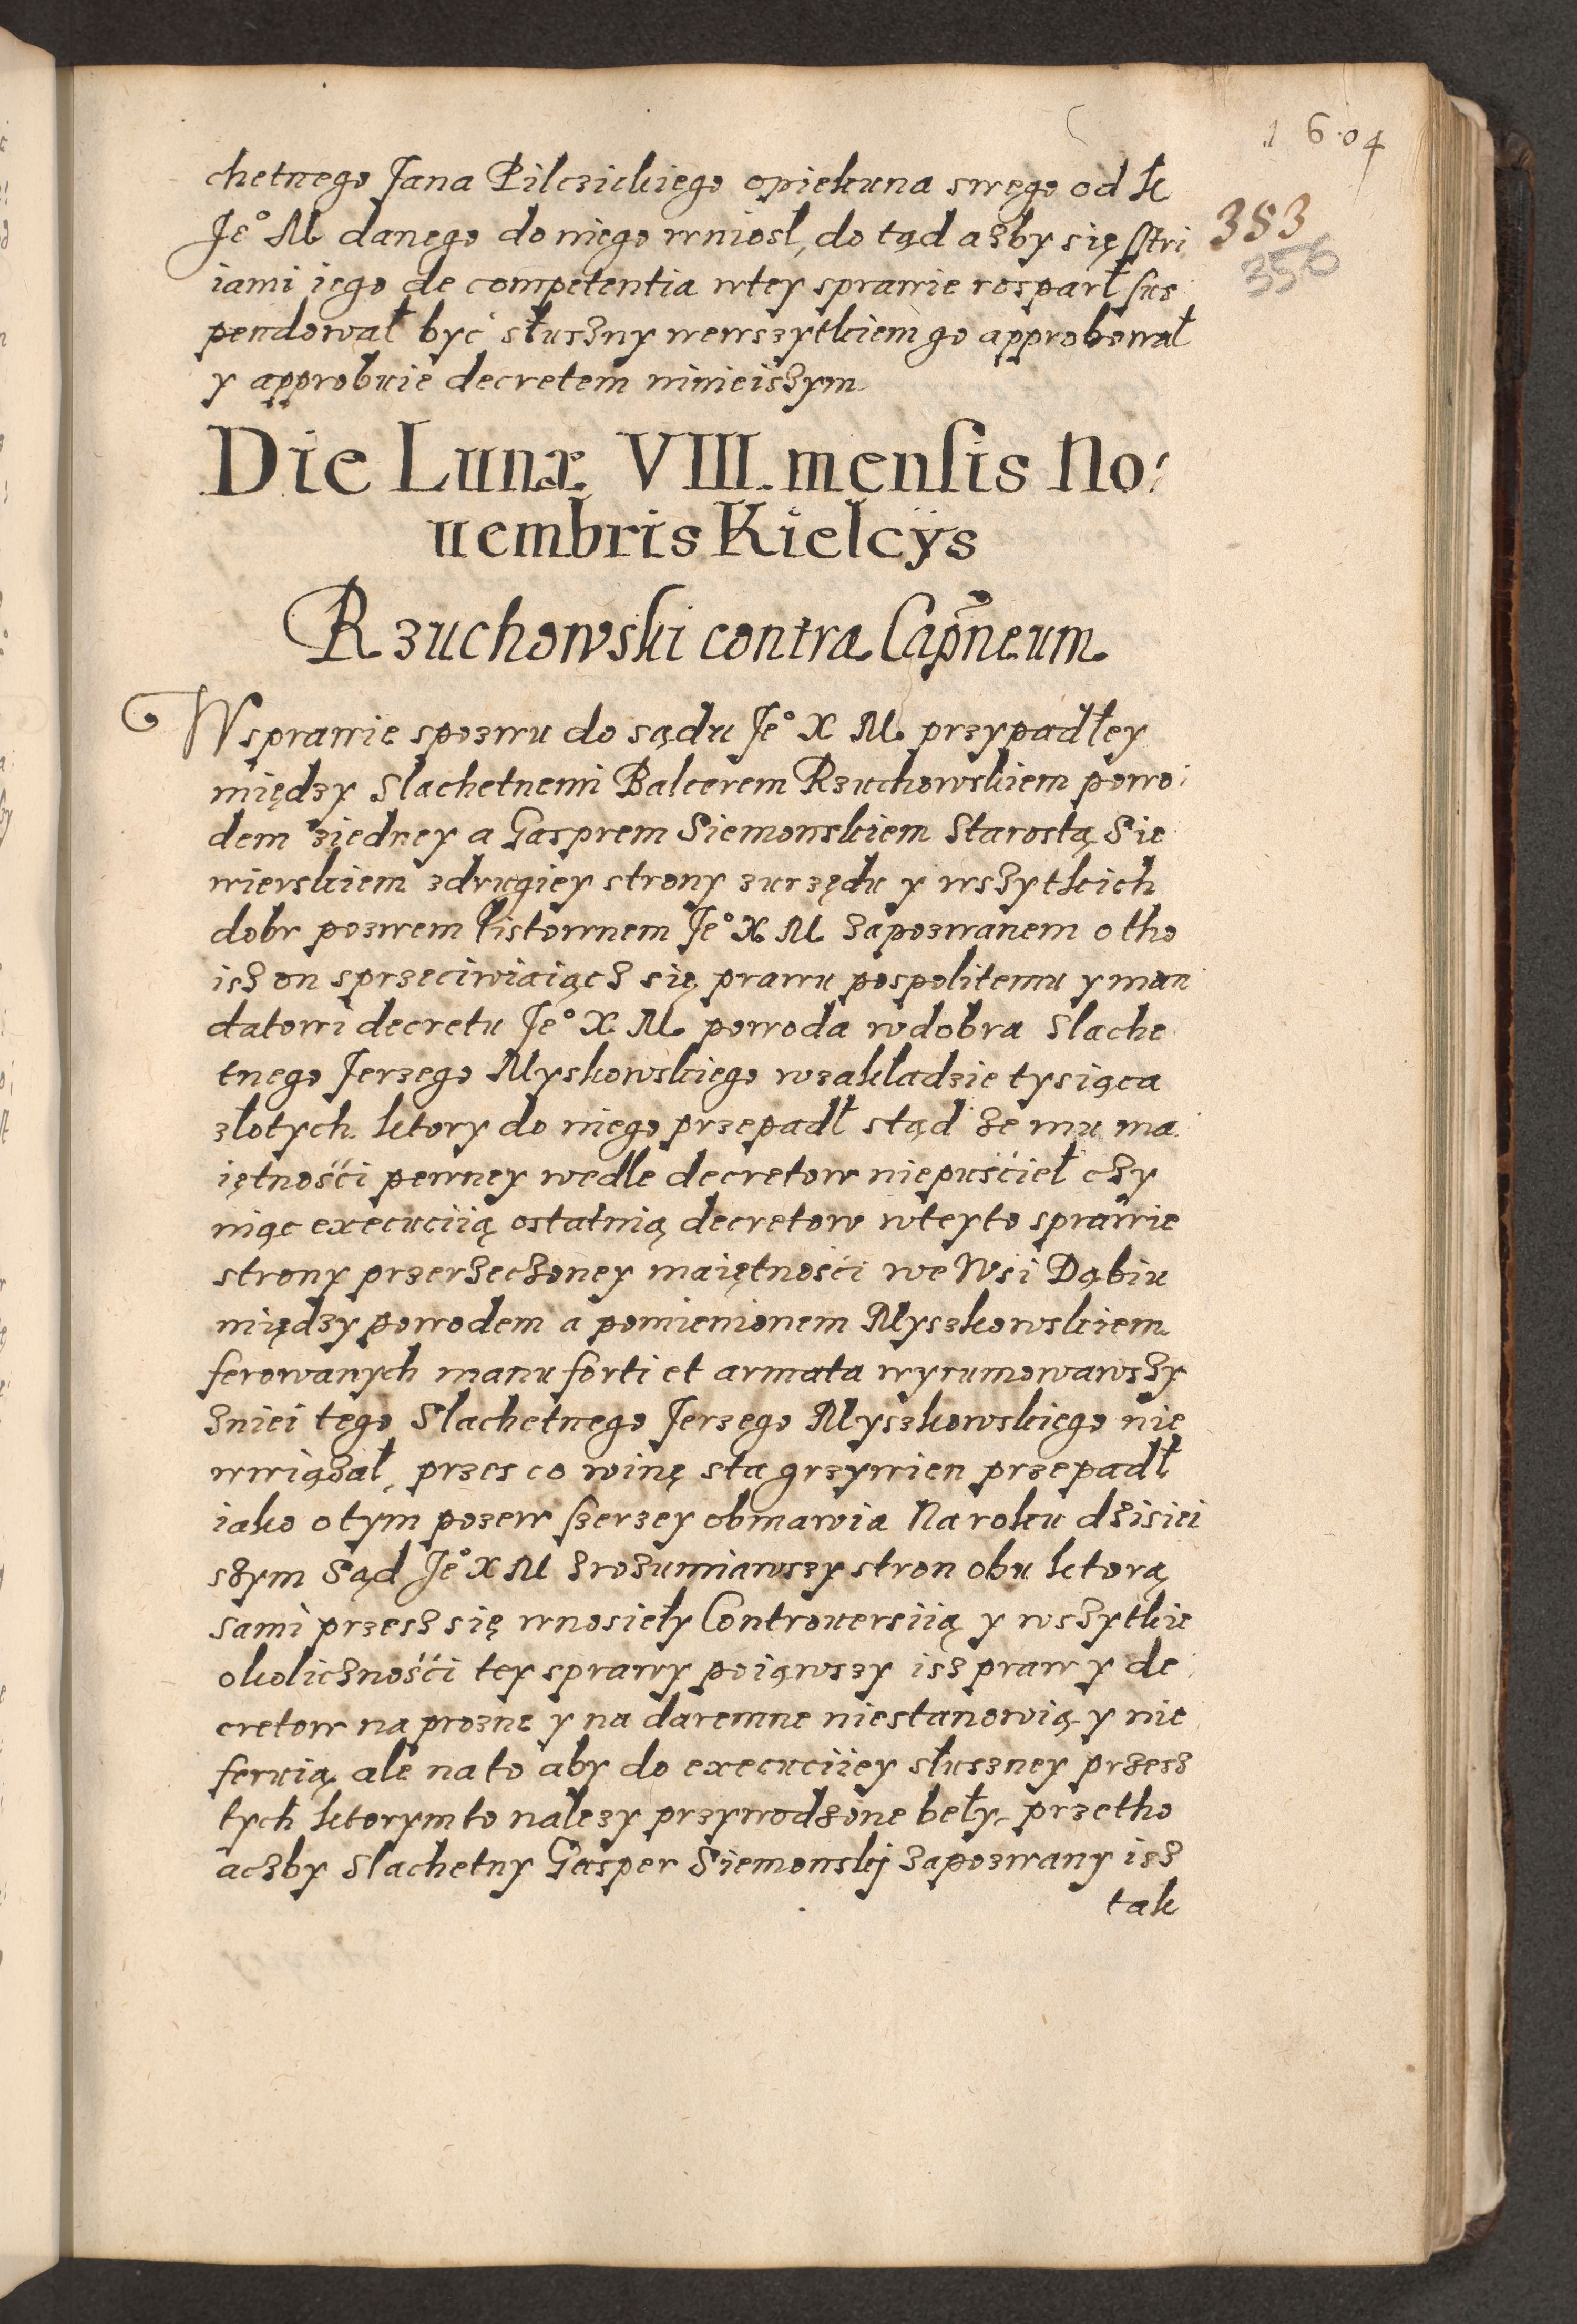 1604
383
356
chetnego Jana Pilczickiego opiekuna swego od K
Je° M danego do niego wniosł, do tąd ażby się stri
iami iego de competentia wtey sprawie rosparł sus
pendował być słuszny wewszytkiem go approbował
y approbuie decretem ninieiszym
Die Lunæ VIII. mensis No:
uembris Kielcÿs
Rzuchowski contra Cap̃neum
Wsprawie spozwu do sądu Je° X M przypadłey
między Slachetnemi Balcerem Rzuchowskiem powo:
dem ziedney a Gasprem Siemonskiem Starostą Sie
wierskiem zdrugiey strony zurzędu y wszytkich
dobr pozwem listownem Je° X M zapozwanem o tho
isz on sprzeciwiaiącz się prawu pospolitemu y man
datowi decretu Je° X M powoda wdobra Slache
tnego Jerzego Myskowskiego wzakładzie tysiąca
złotych ktory do niego przepadł stąd że mu ma
iętnośći pewney wedle decretow niepuśćieł czy
niąc execuciią ostatnią decretow wteyto sprawie
strony przerzeczoney maiętnośći we Wsi Dąbiu
między powodem a pomienionem Myszkowskiem
ferowanych manu forti et armata wyrumowawszy
zniei tego Slachetnego Jerzego Myszkowskiego nie
wwiązał, przes co winę sta grzywien przepadł
iako otym pozew szerzey obmawia Na roku dzisiei
szym Sąd Je° X M zrozumiawszy stron obu ktorą
sami przesz się wnosieły Controuersiią y wszytkie
okolicznośći tey sprawy poiąwszy isz praw y de
cretow na prozne y na daremne niestanowią y nie
feruią ale na to aby do execuciiey słuszney przesz
tych ktorym to nalezy przywodzone beły przetho
aczby Slachetny Gasper Siemonskj zapozwany isz
tak